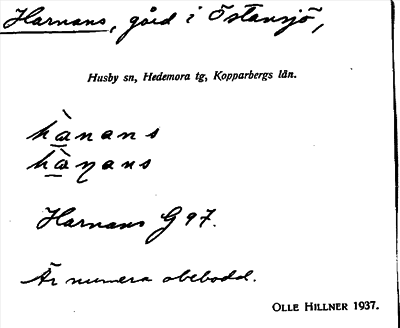 Harnans, gård i Östansjö,
Husby sn, Hedemora tg, Kopparbergs län.
hà̲nans
hà̲ɳans
Harnans G 97.
Är numera obebodd.
OLLE HILLNER 1937.